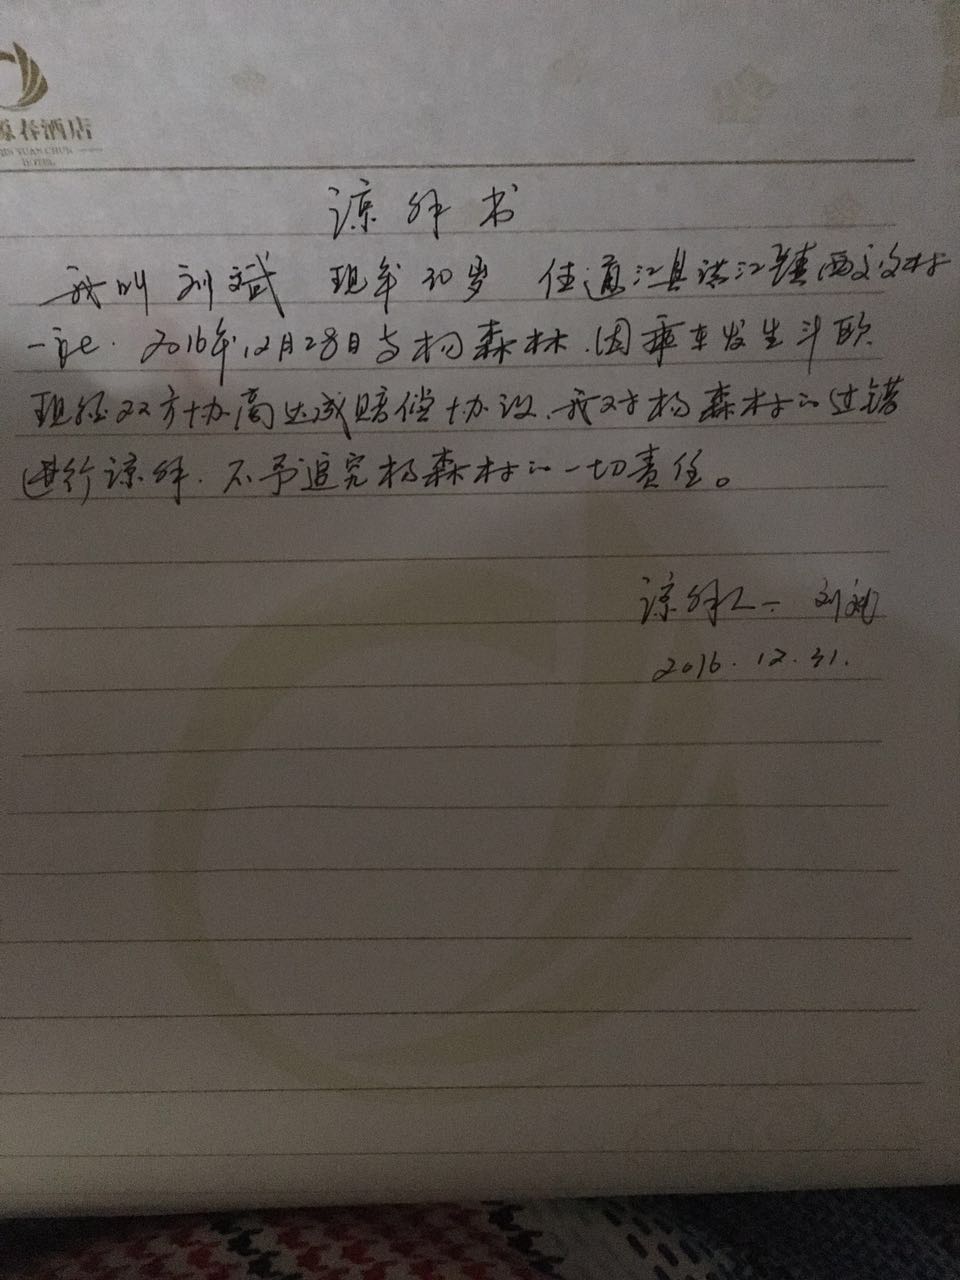 源春酒店
YUAN CHUN
HOTEL
谅解书
我叫刘斌 现年30岁 住通江县诺江镇西文村
一社. 2016年12月28日与杨森林.因乘车发生斗殴
现经双方协商达成赔偿协议、我对杨森林的过错
进行谅解.不予追究杨森林的一切责任。
谅解人: 刘斌
2016.12.31.